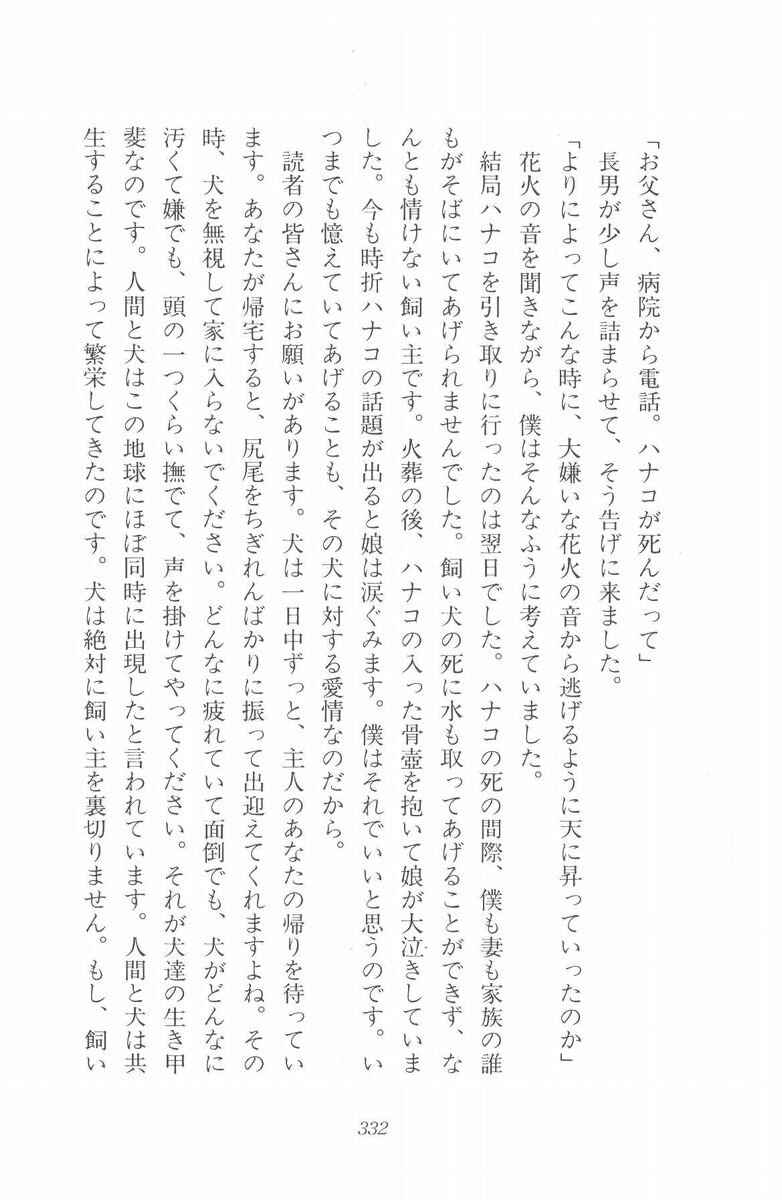 「お父さん、病院から電話。ハナコが死んだって」
長男が少し声を詰まらせて、そう告げに来ました。
「よりによってこんな時に、大嫌いな花火の音から逃げるように天に昇っていったのか」
花火の音を聞きながら、僕はそんなふうに考えていました。
結局ハナコを引き取りに行ったのは翌日でした。ハナコの死の間際、僕も妻も家族の誰
もがそばにいてあげられませんでした。飼い犬の死に水も取ってあげることができず、な
んとも情けない飼い主です。火葬の後、ハナコの入った骨壺を抱いて娘が大泣きしていま
した。今も時折ハナコの話題が出ると娘は涙ぐみます。僕はそれでいいと思うのです。い
つまでも憶えていてあげることも、その犬に対する愛情なのだから。
読者の皆さんにお願いがあります。犬は一日中ずっと、主人のあなたの帰りを待ってい
ます。あなたが帰宅すると、尻尾をちぎれんばかりに振って出迎えてくれますよね。その
時、犬を無視して家に入らないでください。どんなに疲れていて面倒でも、犬がどんなに
汚くて嫌でも、頭の一つくらい撫でて、声を掛けてやってください。それが犬達の生き甲
斐なのです。人間と犬はこの地球にほぼ同時に出現したと言われています。人間と犬は共
生することによって繁栄してきたのです。犬は絶対に飼い主を裏切りません。もし、飼い
332